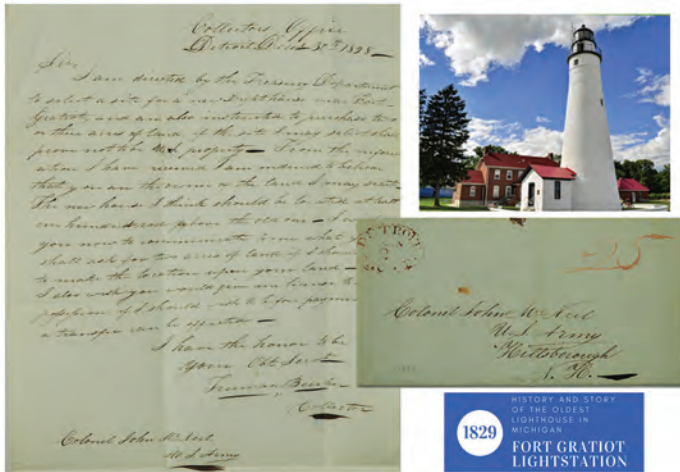 Collectors Office
Detroit 1828
Sir,
I am directed by the Treasury Department
to select a site for a new Lighthouse near Fort
Gratiot, and am also instructed to purchase two
or three acres of land, if the site I may select shall
prove not to be U.S. property — From the inform
ation I have received I am induced to believe
that you are the owner of the land I may select
The new house I think should be located at least
one hundred rod above the old one —
you now to communicate to me what
shall ask for two acres of land if I should
to make the location upon your land —
I also wish you would give me license to
possession if I should wish to before payment
a transfer can be effected —
I have the honor to be
your Obt. Servt
Collector
Colonel John McNeil
U.S. Army
DETROIT
25
Colonel John McNeil
U.S. Army
Hillsborough
N. H.
1829
HISTORY AND STORY
OF THE OLDEST
LIGHTHOUSE IN
MICHIGAN
FORT GRATIOT
LIGHTSTATION